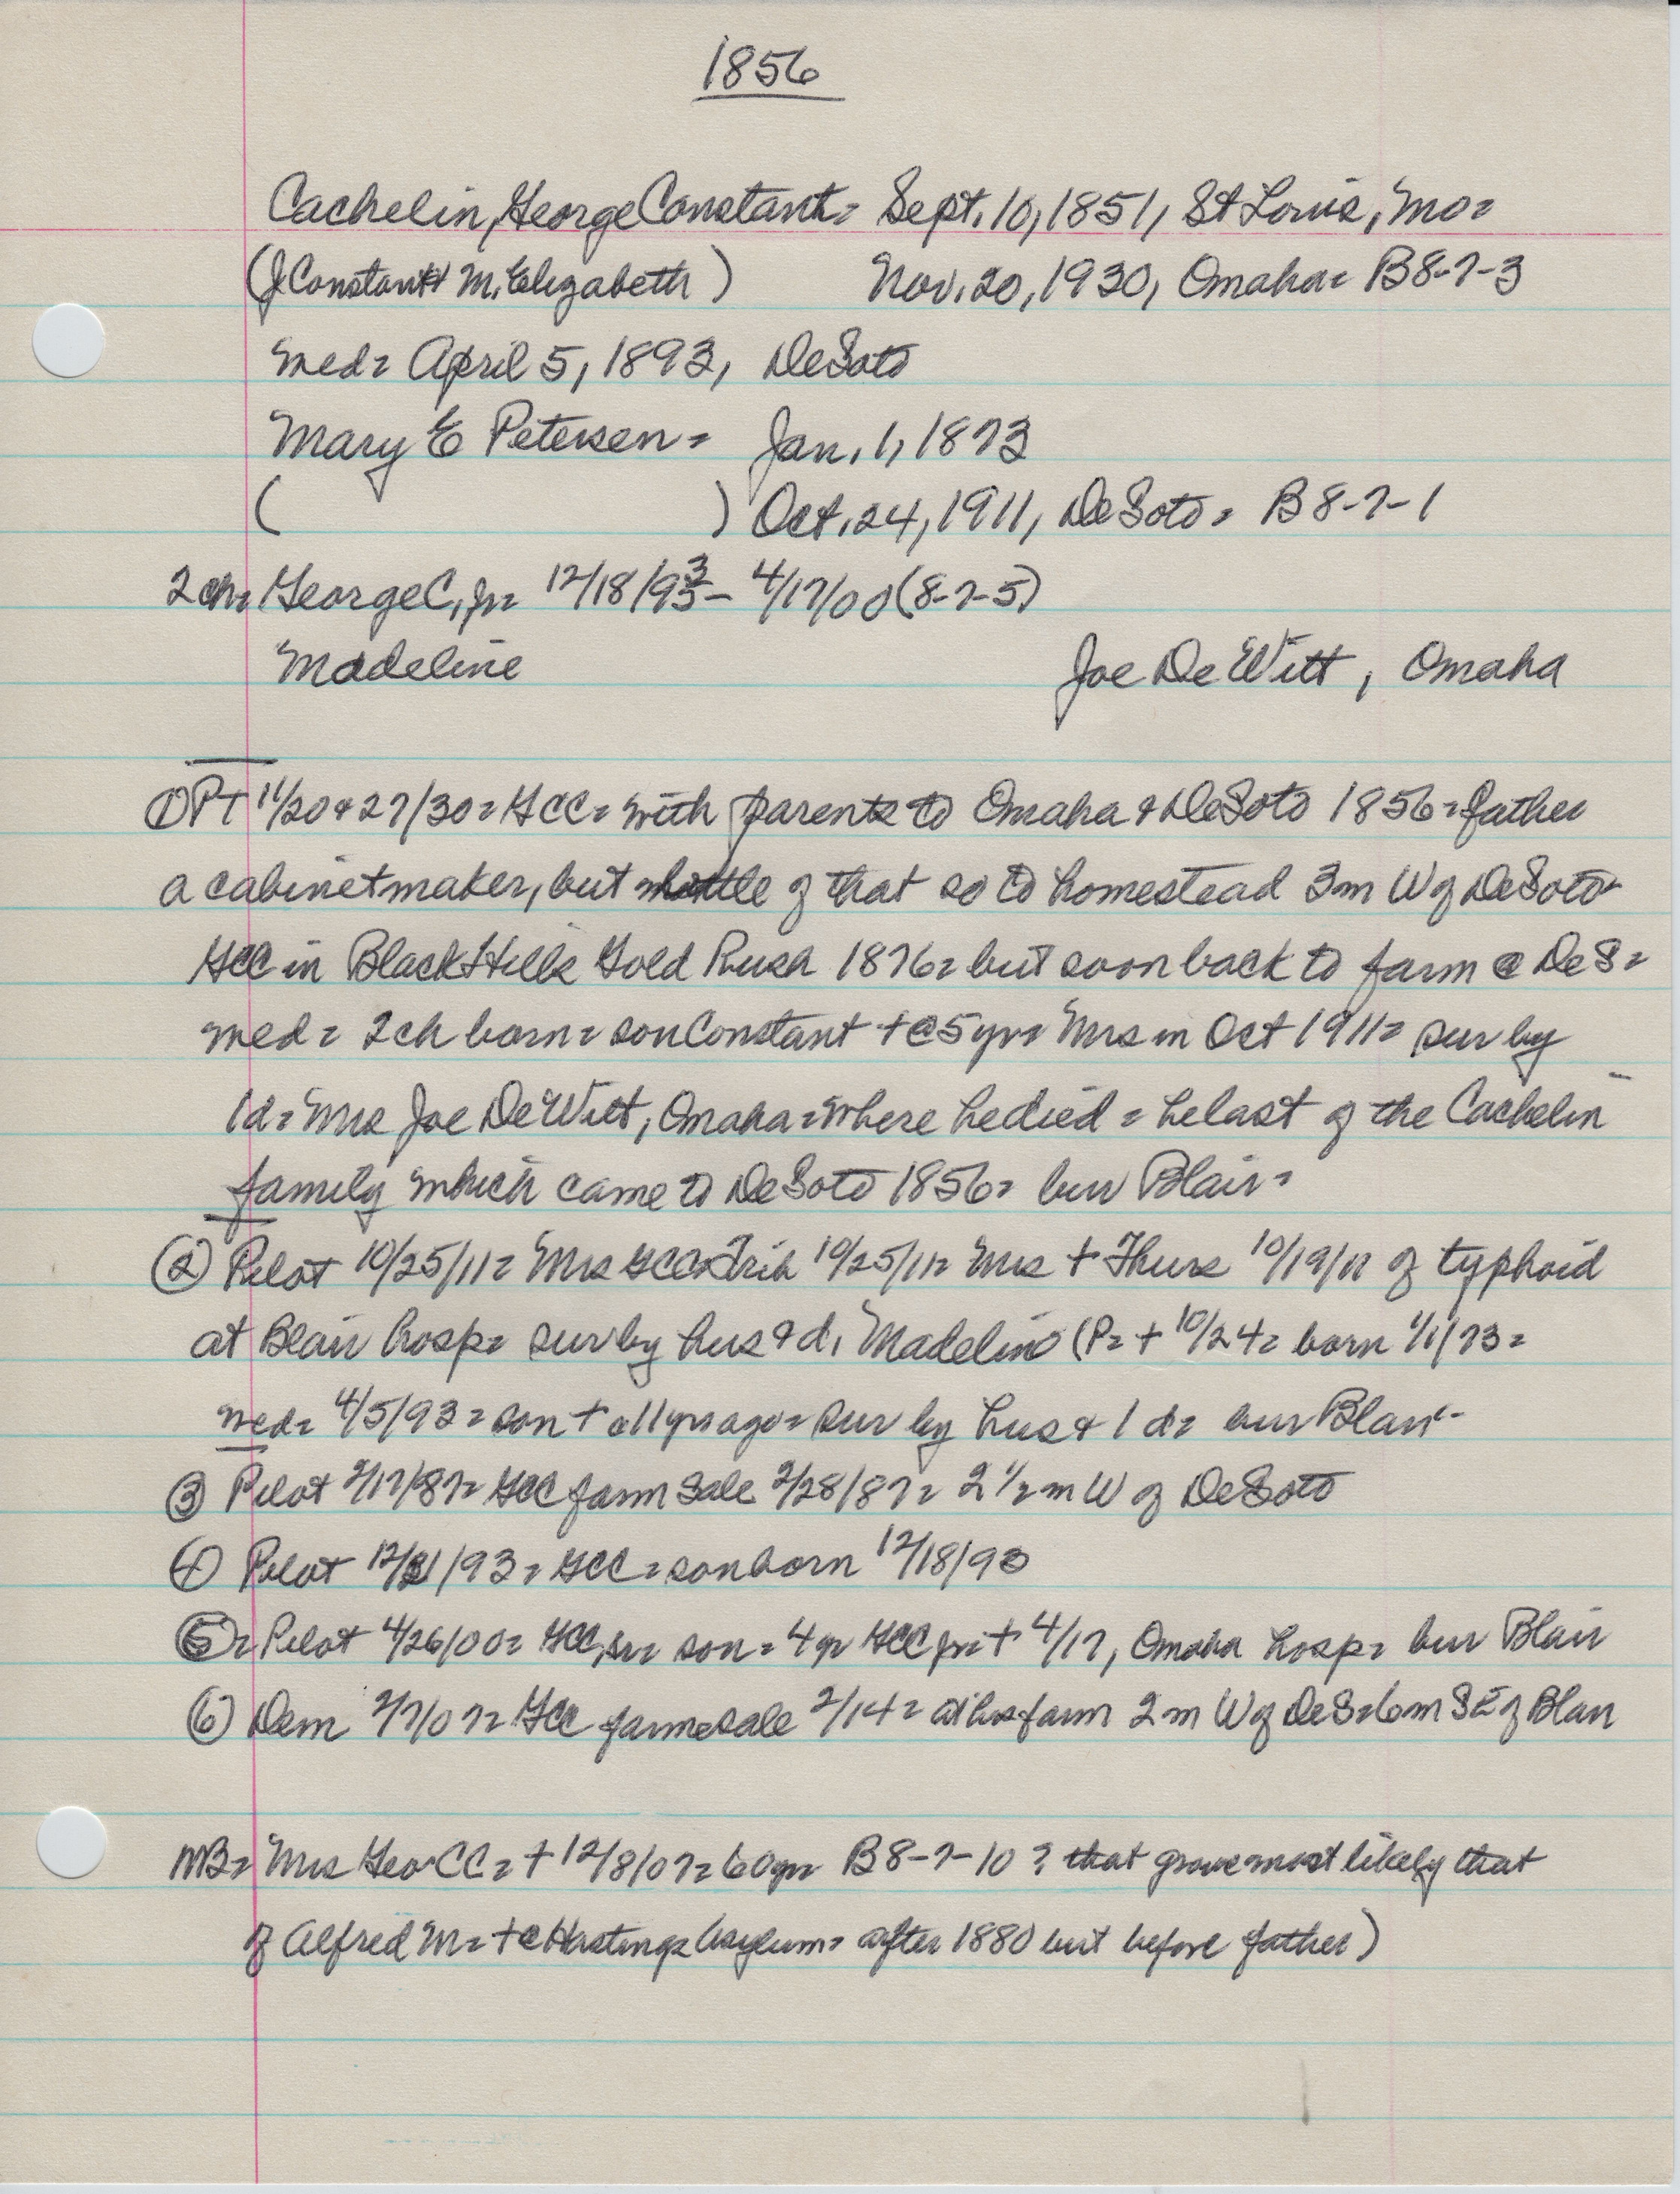 1856
Cachelin, George Constant = Sept. 10, 1851, St Louis, Mo =
(J Constant & M. Elizabeth) Nov. 20, 1930, Omaha = B8-7-3
med = April 5, 1893, DeSoto
Mary E Petersen = Jan. 1, 1873
( ) Oct. 24, 1911, DeSoto = B8-7-1
2 ch = George C, Jr = 12/18/93 - 4/17/00 (8-7-5)
Madeline Joe DeWitt, Omaha
① PT 11/20 & 27/30 = GCC = with parents to Omaha & DeSoto 1856 = father
a cabinetmaker, but little of that so to homestead 3m W of DeSoto
GCC in Black Hills Gold Rush 1876 = but soon back to farm @ DeS =
med = 2 ch born = son Constant + @ 5 yr = Mrs in Oct 1911 = sur by
1 d = Mrs Joe DeWitt, Omaha = where he died = he last of the Cachelin
family which came to DeSoto 1856 = bur Blair =
② Pilot 10/25/11 = Mrs GCC = Trib 10/25/11 = Mrs + Thurs 10/19/11 of typhoid
at Blair hosp = sur by hus & d, Madeline (P = + 10/24 = born 1/1/73 =
med = 4/5/93 = son + 11 yrs ago = sur by hus & 1 d = bur Blair -
③ Pilot 2/17/87 = GCC farm sale 2/28/87 = 2 1/2 m W of DeSoto
④ Pilot 12/21/93 = GCC = son born 12/18/93
⑤ = Pilot 4/26/00 = GCC, Sr = son = 4 yr GCC Jr = + 4/17, Omaha hosp = bur Blair
⑥ Dem 2/7/07 = GCC farm sale 2/14 = at his farm 2 m W of DeS = 6m SE of Blair
NB = Mrs Geo CC = + 12/8/07 = 60 yr = B8-7-10 ? that grave most likely that
of Alfred M = + @ Hastings Asylum = after 1880 but before father)